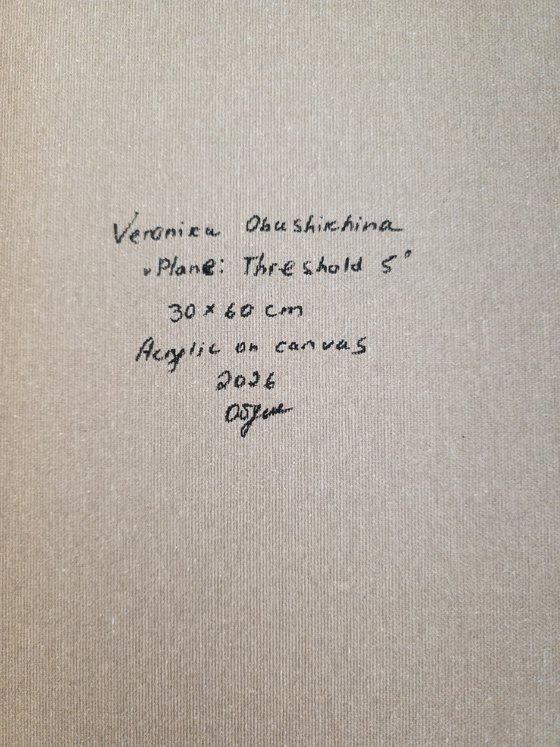 Veronika Obushikhina
"Plane: Threshold 5"
30 × 60 cm
Acrylic on canvas
2026